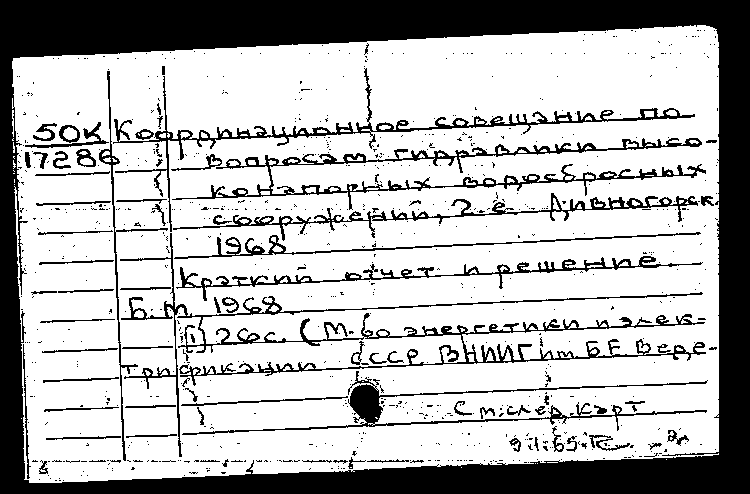 50К Координационное совещание по
17286 вопросам гидравлики высо-
конапорных водосбросных
сооружений, 2-е. Дивногорск.
1968
Краткий отчет и решение.
Б.м. 1968
[1], 26с. (М-во энергетики и элек-
трификации СССР ВНИИГ им Б Е Веде-
См.след.карт.